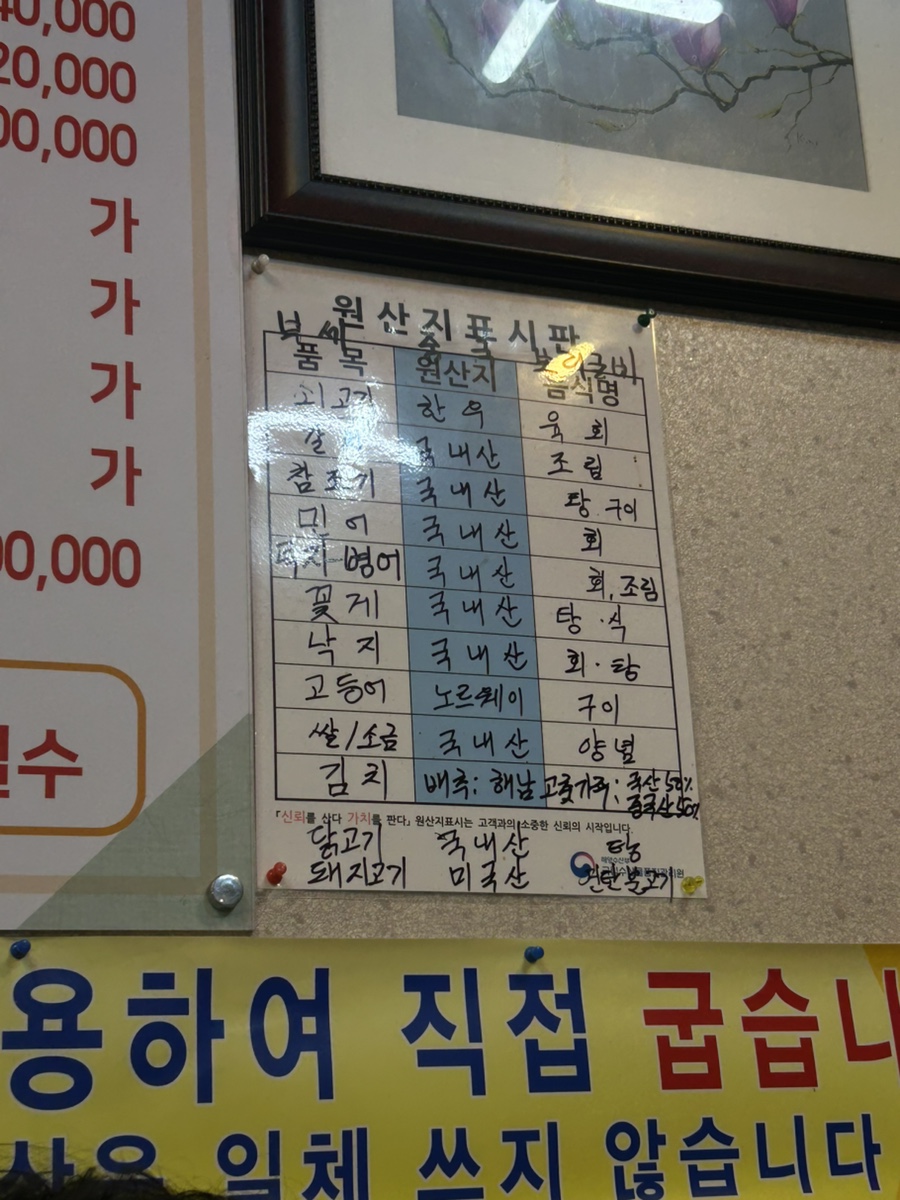 40,000
20,000
00,000
가
가
가
가
00,000
수
원산지표시판
부세 중국 보리굴비
품목 원산지 음식명
쇠고기 한우 육회
국내산 조림
참조기 국내산 탕.구이
민어 국내산 회
병어 국내산 회,조림
꽃게 국내산 탕.식
낙지 국내산 회.탕
고등어 노르웨이 구이
쌀/소금 국내산 양념
김치 배추:해남 고춧가루: 국산50% 중국산50%
「신뢰를 산다 가치를 판다」 원산지표시는 고객과의 소중한 신뢰의 시작입니다.
닭고기 국내산 탕
돼지고기 미국산 불고기
해양수산부
용하여 직접 굽습니
일체 쓰지 않습니다